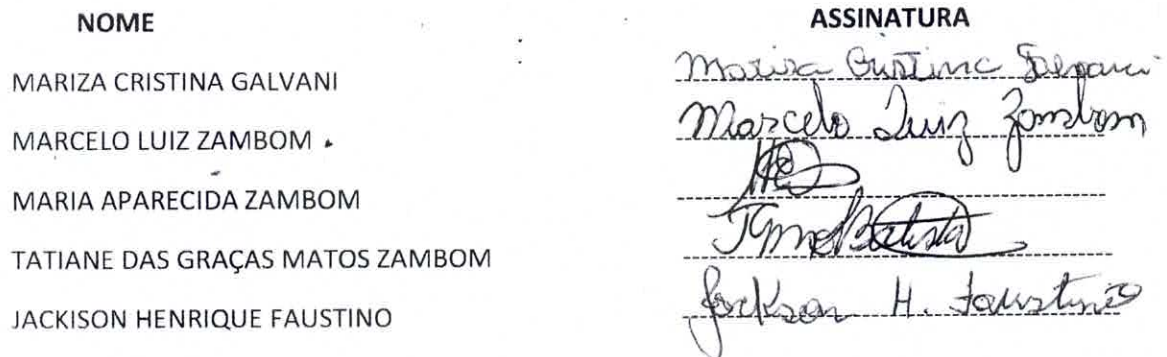 NOME ASSINATURA
MARIZA CRISTINA GALVANI Mariza Cristina Galvani
MARCELO LUIZ ZAMBOM Marcelo Luiz Zambom
MARIA APARECIDA ZAMBOM
TATIANE DAS GRAÇAS MATOS ZAMBOM Batista
JACKISON HENRIQUE FAUSTINO Jackson H. Faustino